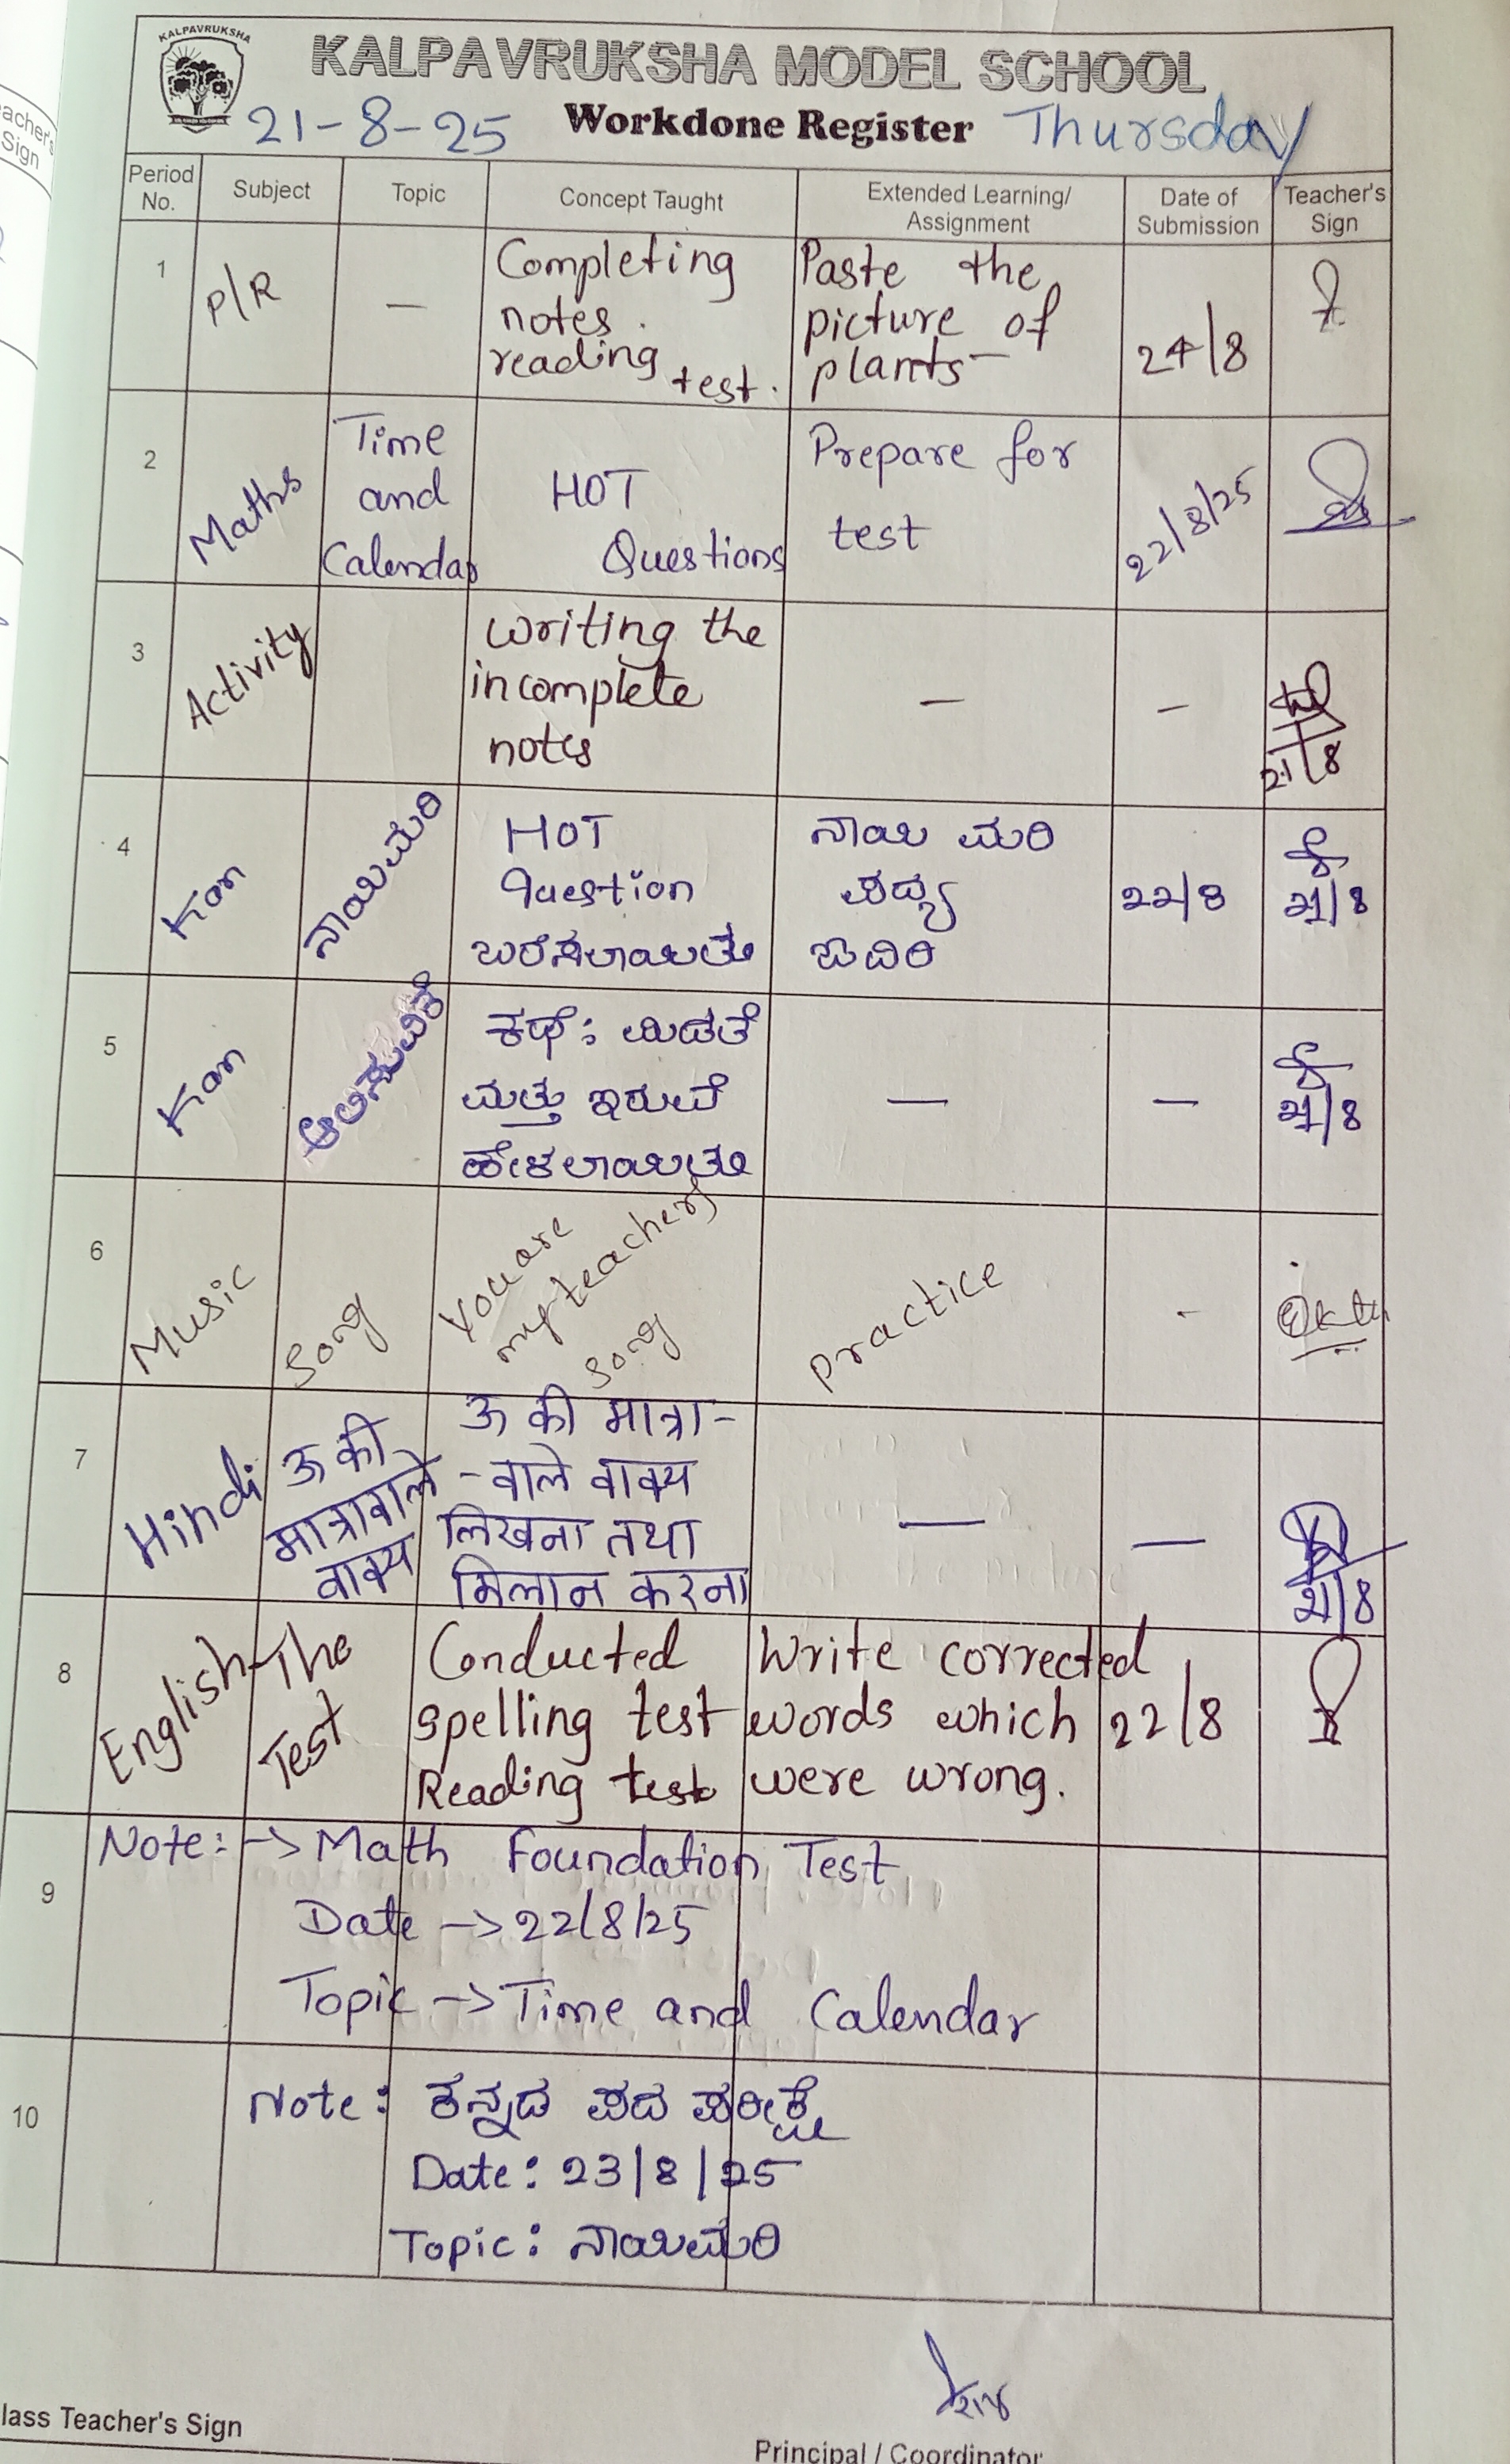 acher's
Sign
KALPAVRUKSHA
KALPAVRUKSHA MODEL SCHOOL
21-8-25 Workdone Register Thursday
Period No. Subject Topic Concept Taught Extended Learning/ Assignment Date of Submission Teacher's Sign
1 P/R — Completing notes. reading test. Paste the picture of plants 24/8
2 Maths Time and Calendar HOT Questions Prepare for test 22/8/25
3 Activity writing the incomplete notes — — 21/8
4 Kan ನಾಯಿಮರಿ HOT Question ಬರೆಸಲಾಯಿತು ನಾಯಿ ಮರಿ ಪದ್ಯ ಓದಿರಿ 22/8 21/8
5 Kan ಆಲಿಸುವಿಕೆ ಕಥೆ: ಮಿಡತೆ ಮತ್ತು ಇರುವೆ ಹೇಳಲಾಯಿತು — — 21/8
6 Music Song You are my teachers song practice -
7 Hindi ऊ की मात्रावाले वाक्य ऊ की मात्रा- -वाले वाक्य लिखना तथा मिलान करना — — 21/8
8 English The Test Conducted spelling test Reading test Write corrected words which were wrong. 22/8
9 Note: -> Math Foundation Test
Date -> 22/8/25
Topic -> Time and Calendar
10 Note: ಕನ್ನಡ ಪದ ಪರೀಕ್ಷೆ
Date: 23/8/25
Topic: ನಾಯಿಮರಿ
lass Teacher's Sign
Principal / Coordinator